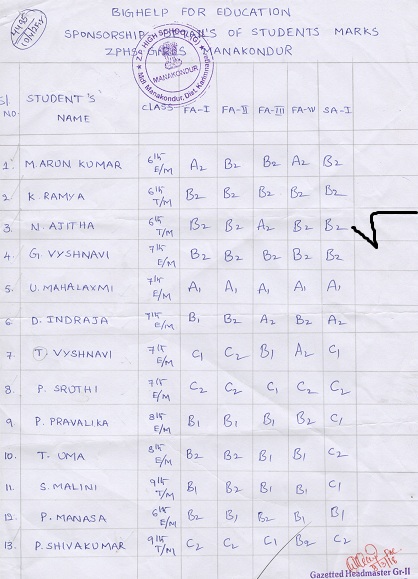 BIGHELP FOR EDUCATION
SPONSORSHIP OF STUDENTS MARKS
ZPHS MANAKONDUR
Sl NO. STUDENT'S NAME CLASS FA-I FA-II FA-III FA-IV SA-I
1. M. ARUN KUMAR 6th E/M A2 B2 B2 A2 B2
2. K. RAMYA 6th T/M B2 B2 B2 B2 B2
3. N. AJITHA 6th T/M B2 B2 A2 B2 B2
4. G. VYSHNAVI 7th E/M B2 B2 B2 B2 B2
5. U. MAHALAXMI 7th E/M A1 A1 A1 A1 A1
6. D. INDRAJA 7th E/M B1 B2 A2 B2 A2
7. T. VYSHNAVI 7th E/M C1 C2 B1 A2 C1
8. P. SRUTHI 7th E/M C2 C2 C1 C2 C2
9. P. PRAVALIKA 8th E/M B1 B1 B1 B2 C1
10. T. UMA 8th E/M B2 B2 B1 B1 C2
11. S. MALINI 9th T/M B1 B2 B1 B1 C1
12. P. MANASA 6th E/M B1 B2 B2 B1 B1
13. P. SHIVAKUMAR 9th T/M C2 C2 C1 B2 C2
Z.P. HIGH SCHOOL
MANAKONDUR
Mdl Manakondur, Dist. Karimnagar
Gazetted Headmaster Gr-II